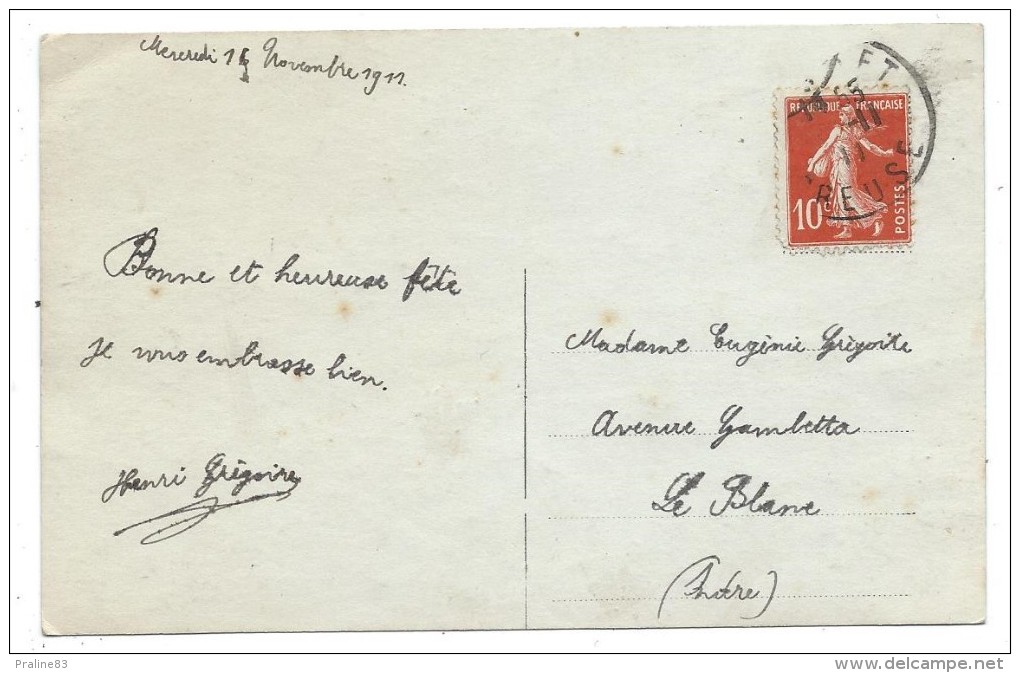 Mercredi 15 Novembre 1911.
REPUBLIQUE FRANÇAISE
10c
POSTES
REUSE
Bonne et heureuse fête
Je vous embrasse bien.
Henri Grégoire
Madame Eugénie Grégoire
Avenue Gambetta
Le Blanc
(Indre)
Praline83
www.delcampe.net